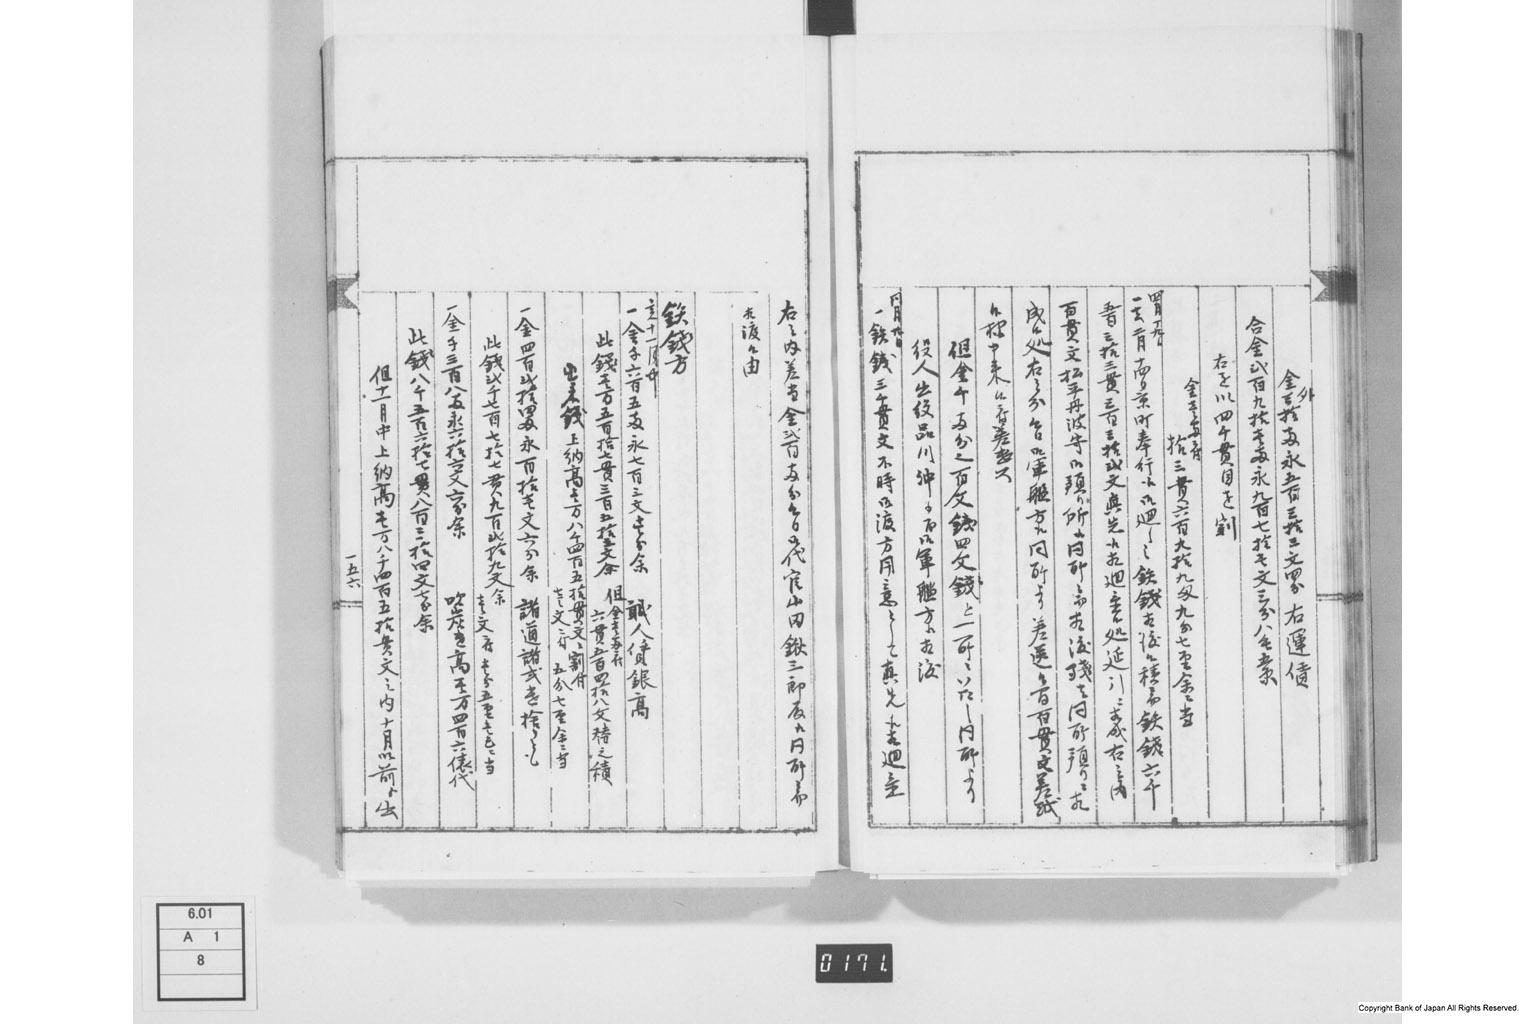 外
金三拾両永五百三拾三文四分 右運賃
合金弐百九拾壱両永九百七拾壱文三分八毛余
右を以四千貫目を割
金壱両ニ付
拾三貫六百九拾九匁九分七厘余ニ当
四月九日
一去二月十四日京町奉行江御廻しニ鉄銭相渡候積ニ而鉄銭六千
五百三拾三貫三百三拾弐文真先江相廻置候処延引ニ相成右之内
百貫文松平丹波守御預り所江同所ニ而相渡残者同所預りニ相
成候処右之分今日御軍艦方江同所より差送候旨百貫文差紙
候様申来候ニ付差出ス
但金千両分之百文銭四文銭と一所ニいたし同所より
役人出役品川沖ニ而御軍艦方江相渡
同月九日
一鉄銭三千貫文不時御渡方用意として真先江相廻置
右之内差当金弐百両分今日御代官山田鍬三郎殿江同所ニ而
相渡候由
鉄銭方
亥十一月中
一金千六百五両永七百三文壱分余 職人賃銀高
此銭壱万五百拾七貫三百五拾五文余 但金壱両ニ付
六貫五百四拾八文替之積
出来銭上納高壱万八千四百五拾貫文ニ割付
壱文ニ付 五分七厘余ニ当
一金四百弐拾四両永百拾壱文六分余 諸道諸式書捨高
此銭弐千七百七拾七貫九百弐拾九文余
壱文ニ付 壱分五厘七毛ニ当
一金千三百八両永六拾六文六分余 吹炭高壱万四百六俵代
此銭八千五百六拾七貫八百三拾四文七分余
但十一月中上納高壱万八千四百五拾貫文之内十月以前より出
一五六
6.01
A 1
8
0171.
Copyright Bank of Japan All Rights Reserved.